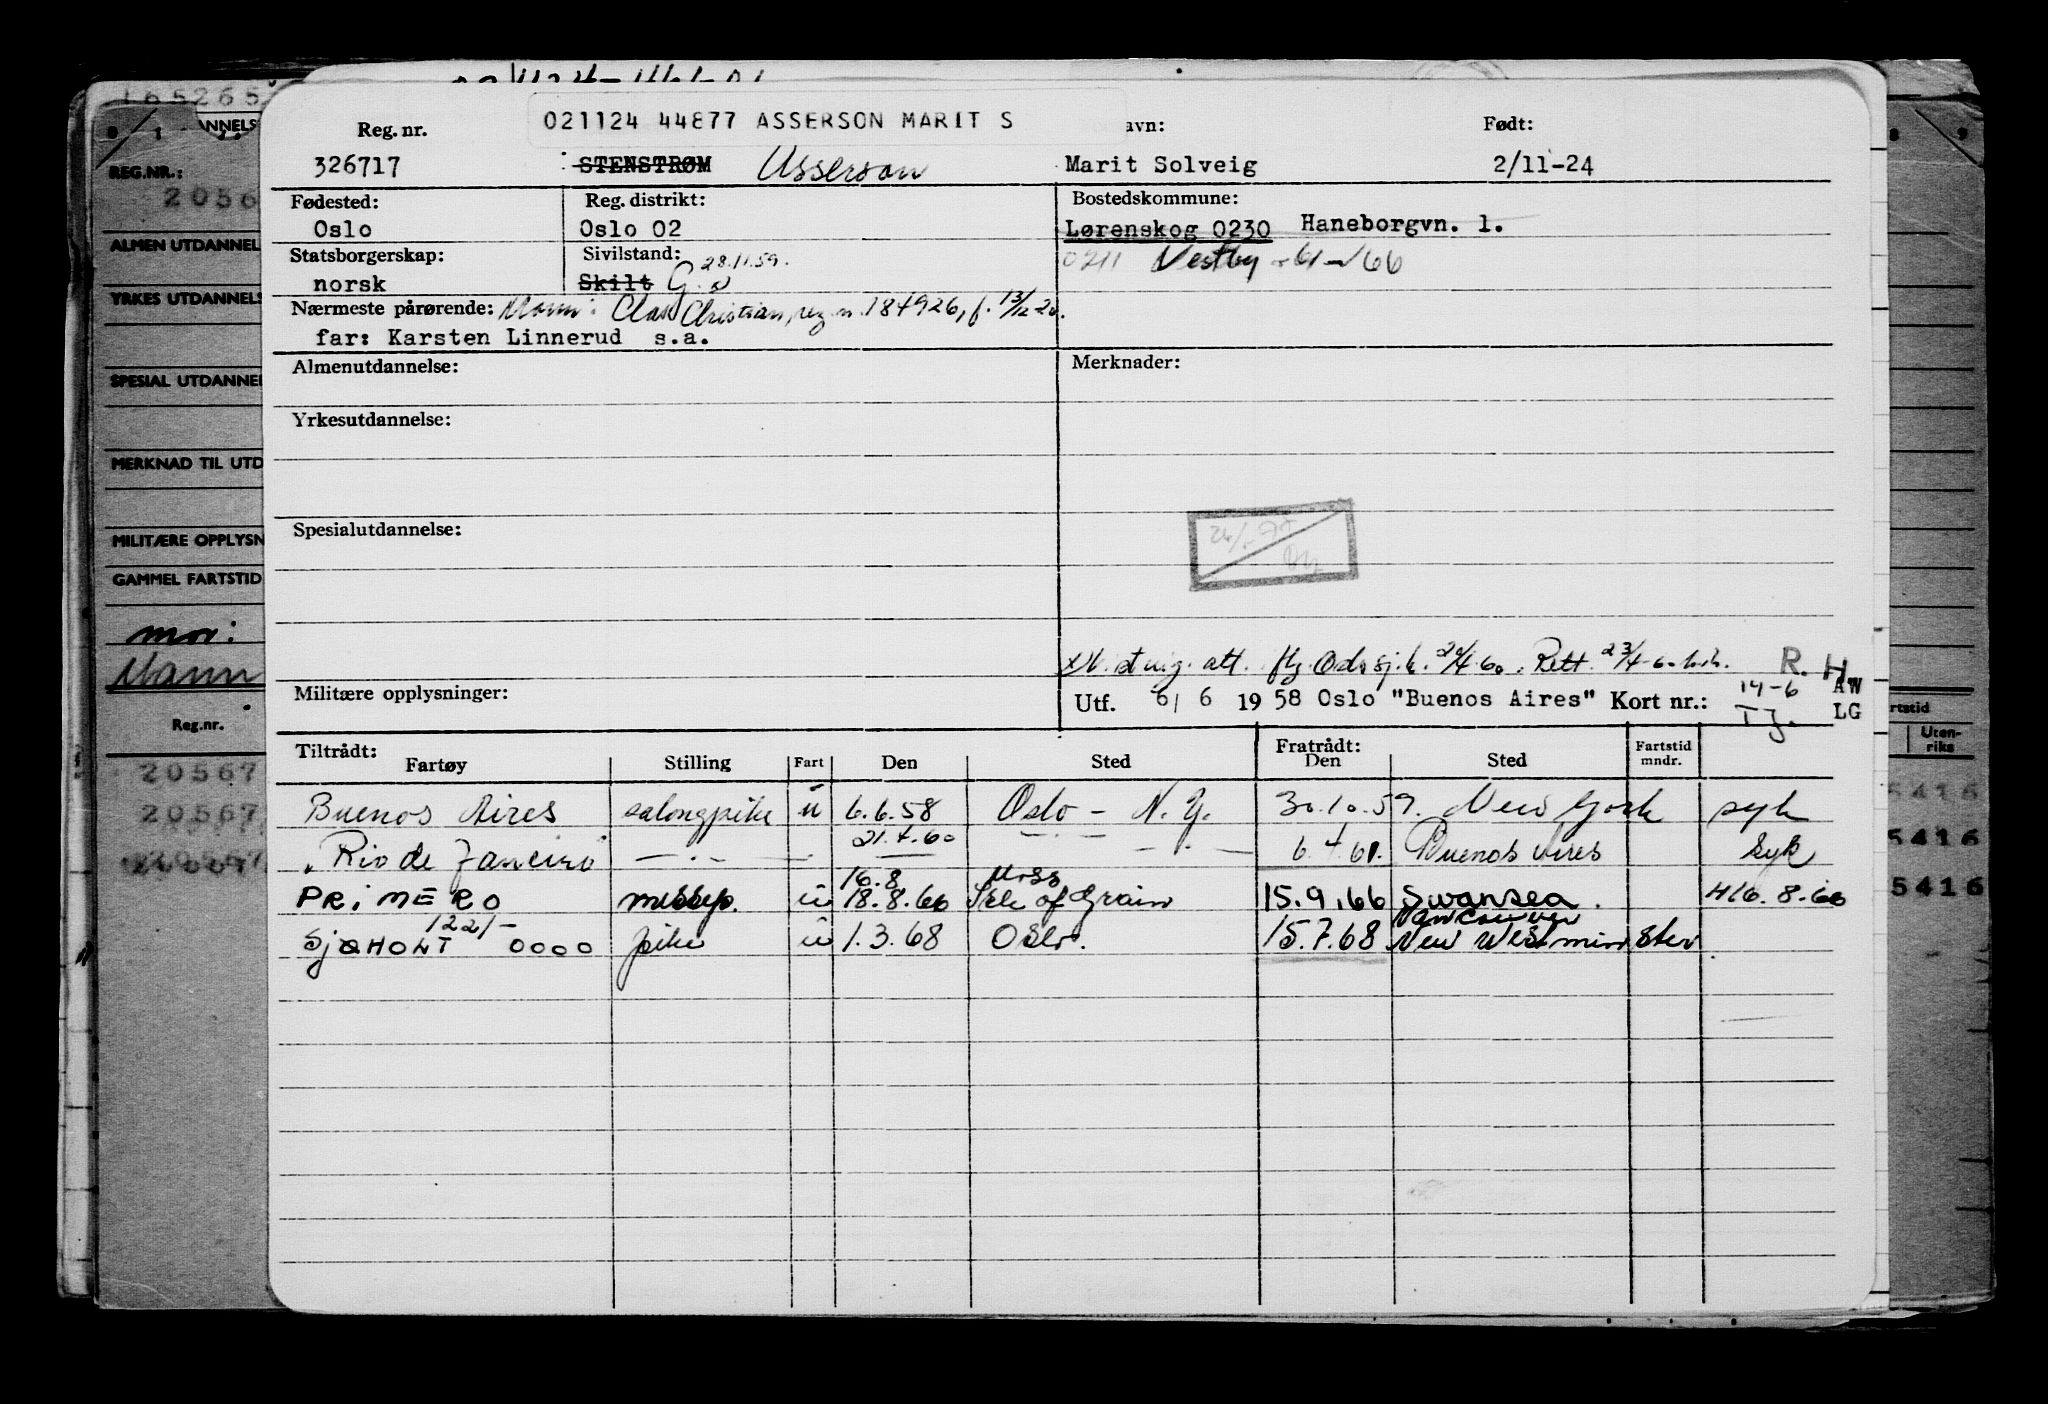 021124 44877 ASSERSON MARIT S
Reg. nr. avn: Født:
326717 STENSTRØM Asserson Marit Solveig 2/11-24
Fødested: Reg. distrikt: Bostedskommune:
Oslo Oslo 02 Lørenskog 0230 Haneborgvn. 1.
Statsborgerskap: Sivilstand: 28.11.59. 0211 Vestby - 61 - 66
norsk Skilt G.
Nærmeste pårørende: Mann: Clas Christian, reg. n. 184926, f. 13/12 20.
far: Karsten Linnerud s.a.
Almenutdannelse: Merknader:
Yrkesutdannelse:
Spesialutdannelse:
att. 20/4-60. Rett. 23/4-60
R. H
Militære opplysninger: Utf. 6/ 6 19 58 Oslo "Buenos Aires" Kort nr.: 14-6 AW
T J. LG
Tiltrådt: Fratrådt: Fartstid
Fartøy Stilling Fart Den Sted Den Sted mndr.
Buenos Aires salongpike u 6.6.58 Oslo - N.Y. 30.10.59. New York syk
"Rio de Janeiro" —"— 21.4.60 —"— —"— 6.4.61. Buenos Aires Syk
16.8 Moss
PRIMERO messep. u 18.8.66 Isle of Grain 15.9.66 Swansea. 16.8.66
1221/- Vancouver
SJØHOLT 0000 pike u 1.3.68 Oslo. 15.7.68 New Westminster
165265
0 1
ANNELS
REG.NR.:
2056
ALMEN UTDANNEL
YRKES UTDANNELS
SPESIAL UTDANNEL
MERKNAD TIL UTD
MILITÆRE OPPLYSN
GAMMEL FARTSTID
mor:
Mann
Reg.nr.
20567
20567
20567
8 9
rtstid
Uten-
riks
5416
5416
5416